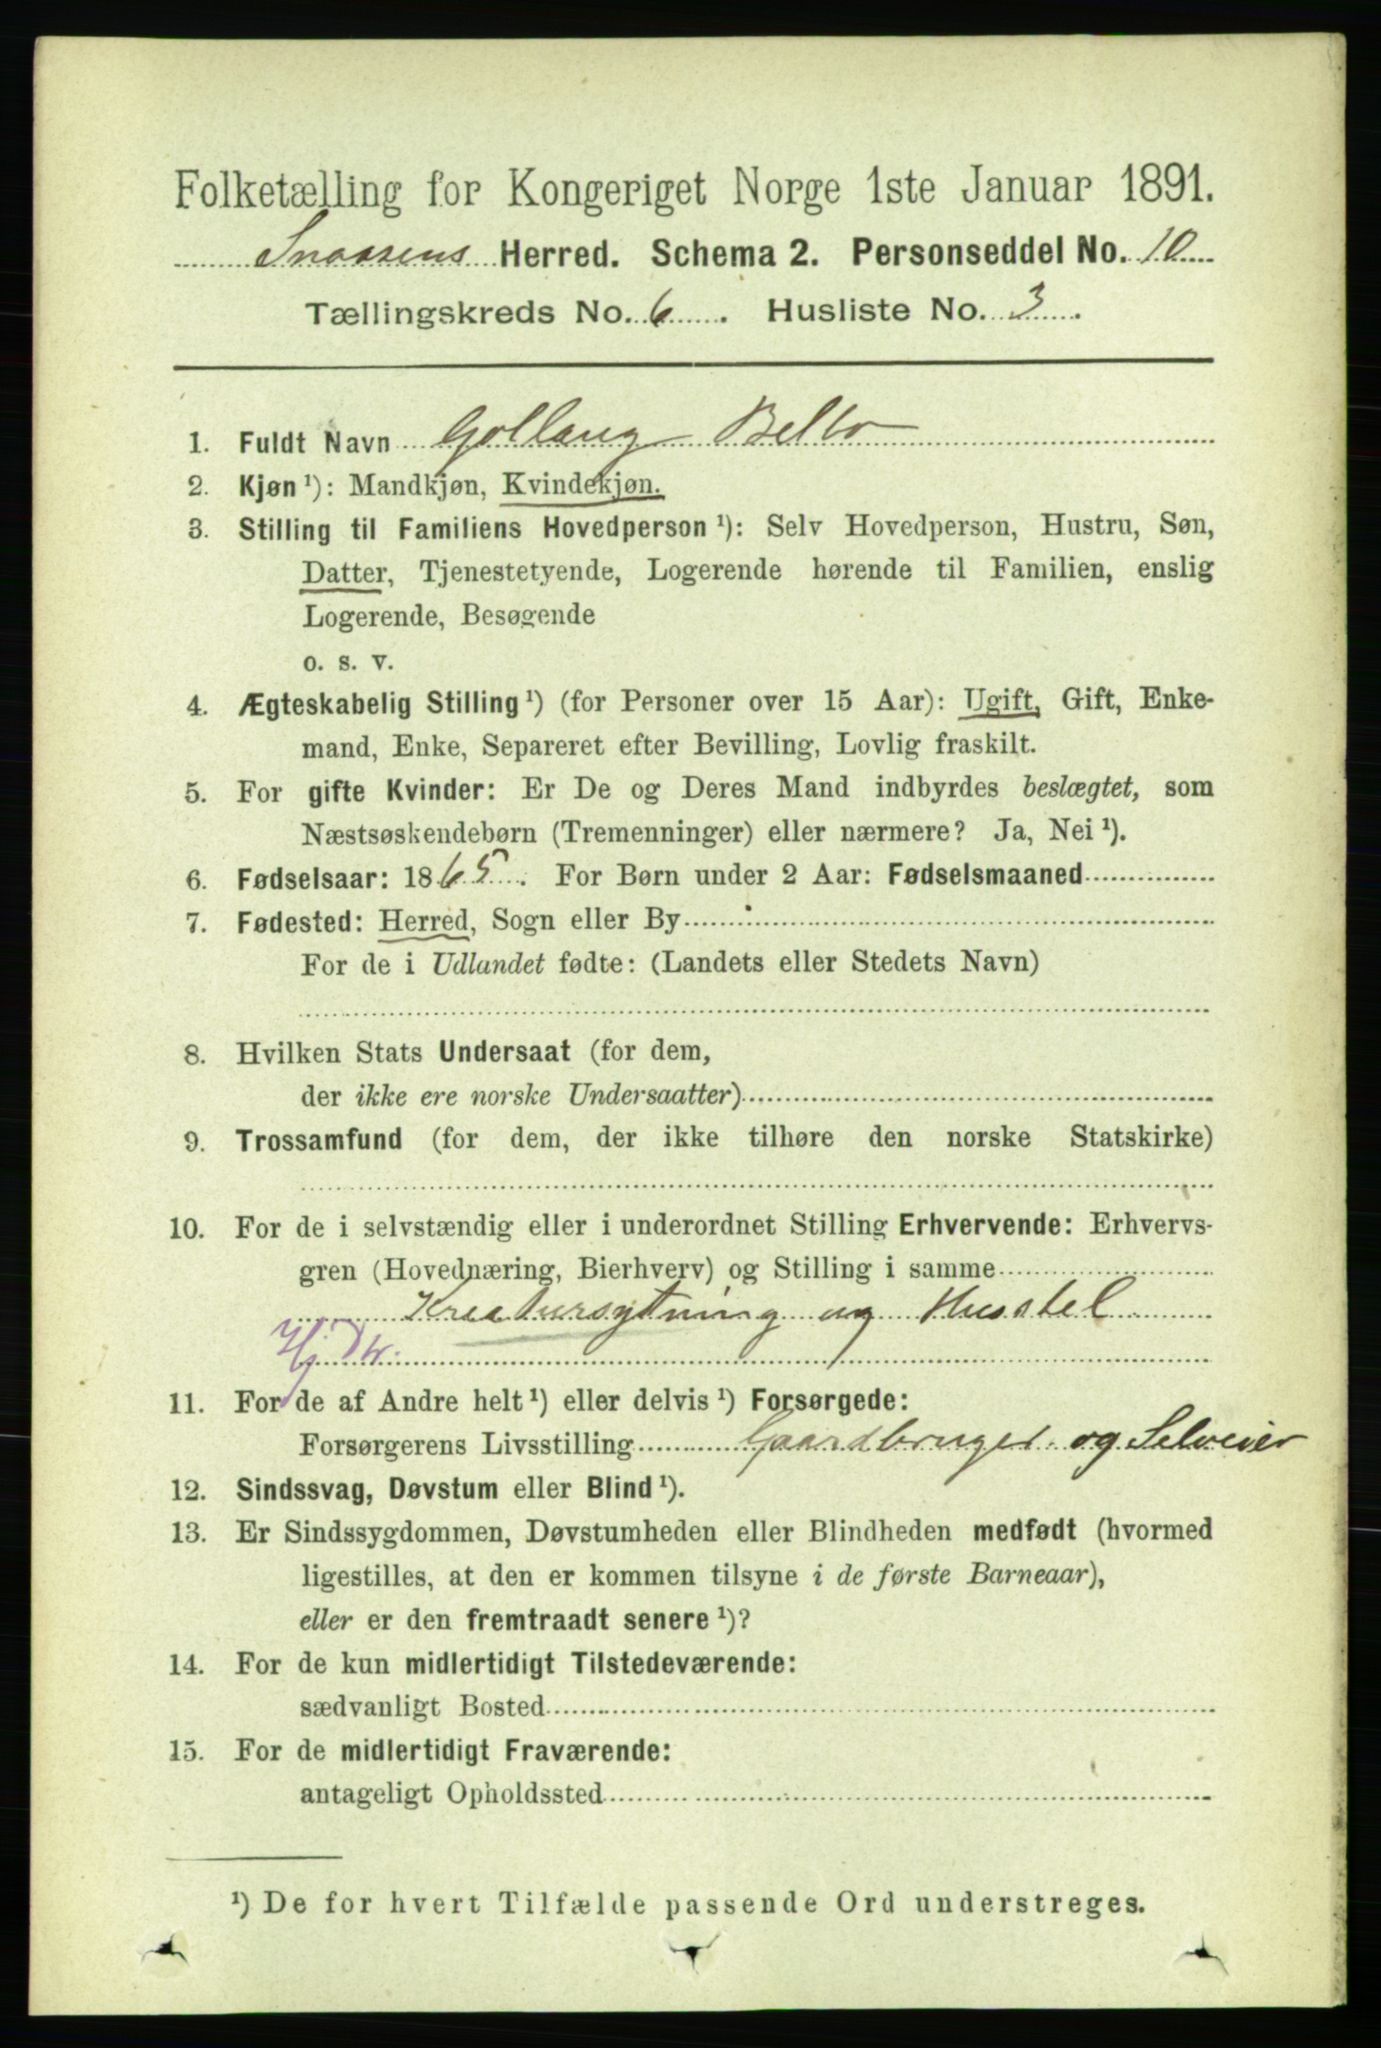 Folketælling for Kongeriget Norge 1ste Januar 1891.
Snaasens Herred. Schema 2. Personseddel No. 10
Tællingskreds No. 6. Husliste No. 3.
1. Fuldt Navn Gollaug Belbo
2. Kjøn ¹): Mandkjøn, Kvindekjøn.
3. Stilling til Familiens Hovedperson ¹): Selv Hovedperson, Hustru, Søn,
Datter, Tjenestetyende, Logerende hørende til Familien, enslig
Logerende, Besøgende
o. s. v.
4. Ægteskabelig Stilling ¹) (for Personer over 15 Aar): Ugift, Gift, Enke-
mand, Enke, Separeret efter Bevilling, Lovlig fraskilt.
5. For gifte Kvinder: Er De og Deres Mand indbyrdes beslægtet, som
Næstsøskendebørn (Tremenninger) eller nærmere? Ja, Nei ¹).
6. Fødselsaar: 1865. For Børn under 2 Aar: Fødselsmaaned
7. Fødested: Herred, Sogn eller By
For de i Udlandet fødte: (Landets eller Stedets Navn)
8. Hvilken Stats Undersaat (for dem,
der ikke ere norske Undersaatter)
9. Trossamfund (for dem, der ikke tilhøre den norske Statskirke)
10. For de i selvstændig eller i underordnet Stilling Erhvervende: Erhvervs-
gren (Hovednæring, Bierhverv) og Stilling i samme
Kreaturrøgtning og Husstel
Hj
11. For de af Andre helt ¹) eller delvis ¹) Forsørgede:
Forsørgerens Livsstilling Gaardbruger og Selveier
12. Sindssvag, Døvstum eller Blind ¹).
13. Er Sindssygdommen, Døvstumheden eller Blindheden medfødt (hvormed
ligestilles, at den er kommen tilsyne i de første Barneaar),
eller er den fremtraadt senere ¹)?
14. For de kun midlertidigt Tilstedeværende:
sædvanligt Bosted
15. For de midlertidigt Fraværende:
antageligt Opholdssted
¹) De for hvert Tilfælde passende Ord understreges.